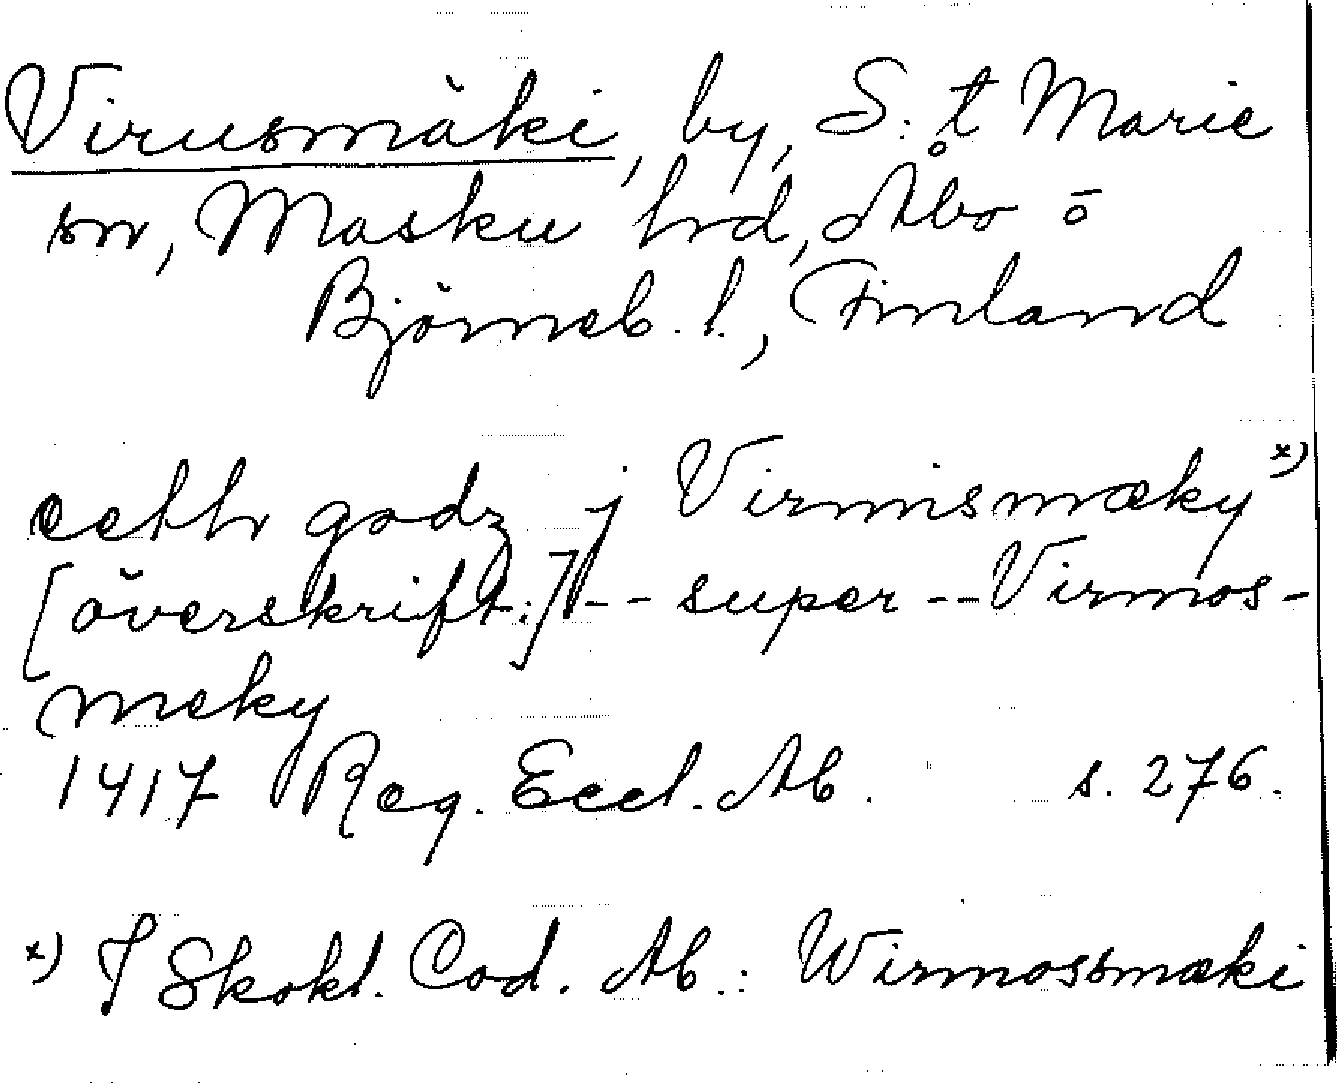 Virusmäki, by, S:t Marie
sn, Masku hd, Åbo o
Björneb. l., Finland
eeth godz j Virmismæky x)
[överskrift:] -- super -- Virmos-
meky
1417 Reg. Eccl. Ab. s. 276.
x) I Skokl. Cod. Ab.: Wirmossmæki